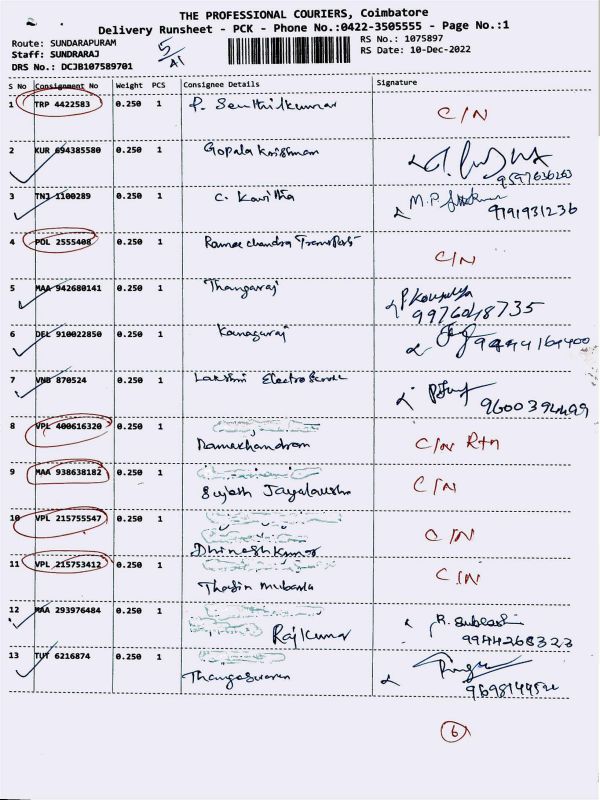 THE PROFESSIONAL COURIERS, Coimbatore
Delivery Runsheet - PCK - Phone No.:0422-3505555 - Page No.:1
Route: SUNDARAPURAM RS No.: 1075897
Staff: SUNDRARAJ 5/A1 RS Date: 10-Dec-2022
DRS No.: DCJB107589701
S No Consignment No Weight PCS Consignee Details Signature
1 TRP 4422583 0.250 1 P. Senthilkumar C/N
2 KUR 694385580 0.250 1 Gopala Krishnan
3 TNJ 1100289 0.250 1 C. Kavitha M.P. 9791931236
4 POL 2555408 0.250 1 Ramachandra Transport C/N
5 MAA 942680141 0.250 1 Thangaraj P Kousalya
9976048735
6 DEL 910022850 0.250 1 Kanagaraj
7 VNB 870524 0.250 1 Lakshmi Electro
9600394499
8 VPL 400616320 0.250 1 Ramachandran C/N Rtn
9 MAA 938638182 0.250 1 Sujesh C/N
10 VPL 215755547 0.250 1 Dhineshkumar C/N
11 VPL 215753412 0.250 1 C/N
12 MAA 293976484 0.250 1 Rajkumar R. Subbashi
9944268323
13 TUT 6216874 0.250 1
6